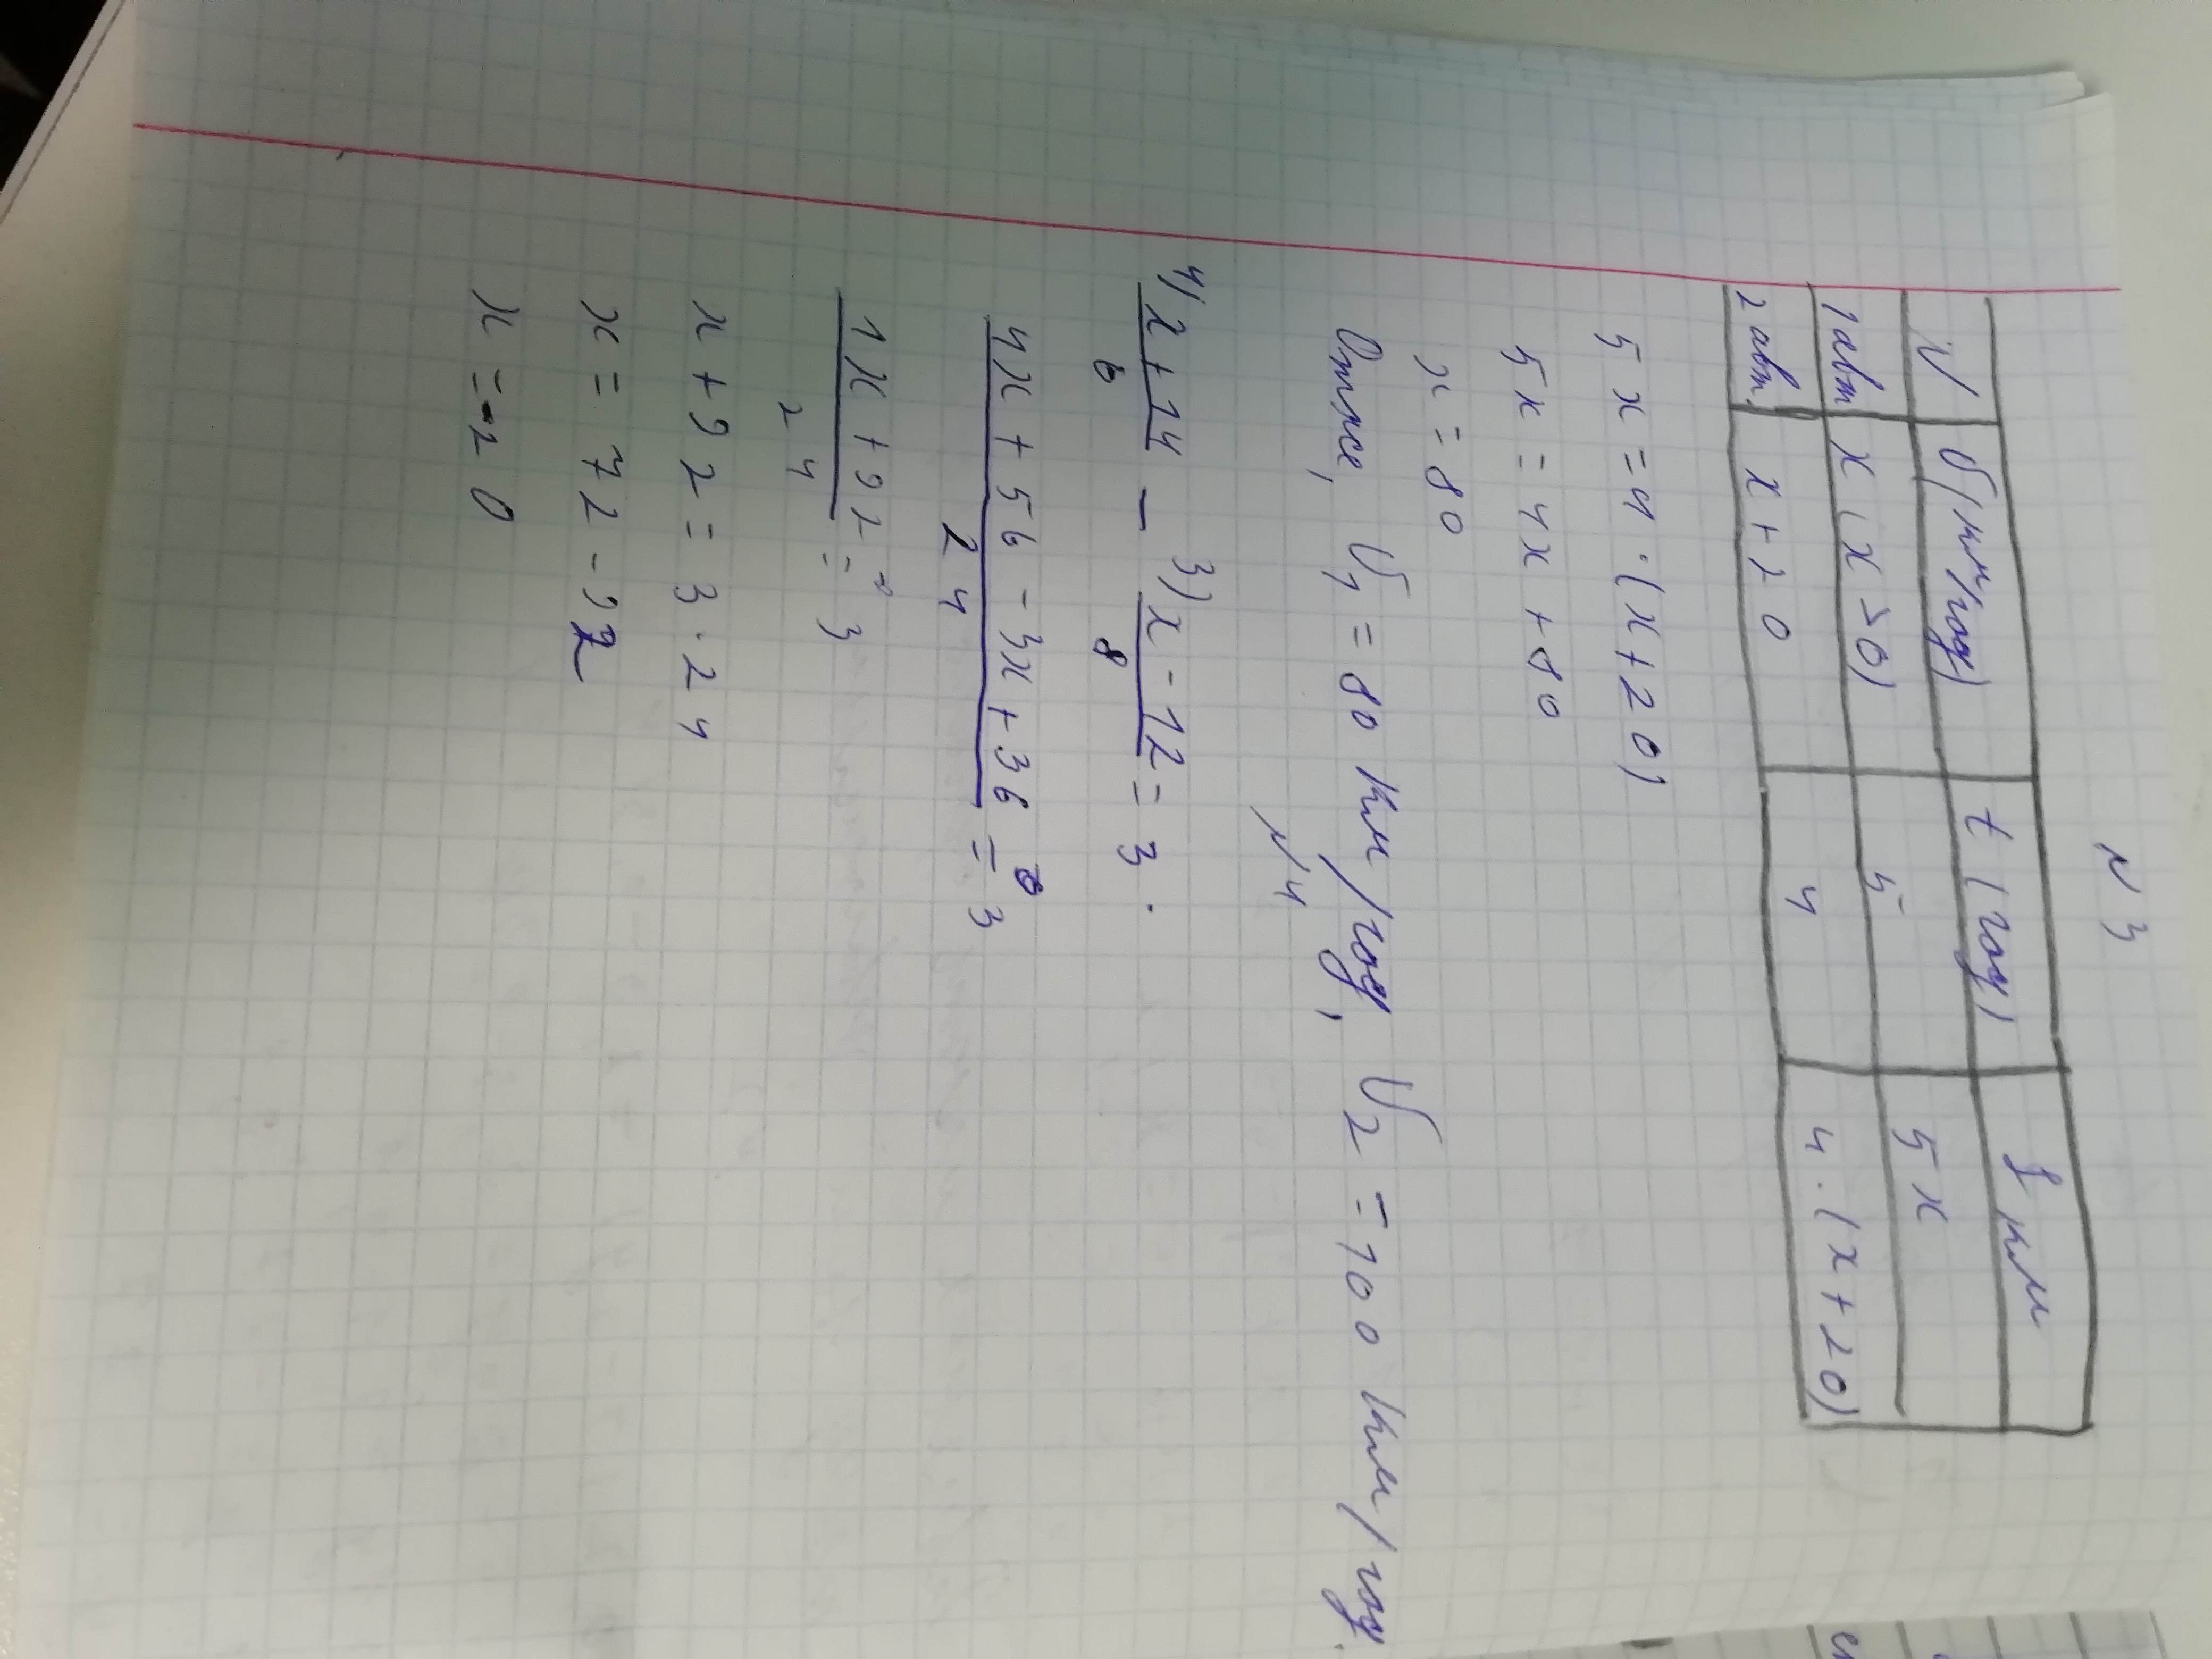 N 3
N | V (км/год) | t (год) | S км
1 авт | x (x > 0) | 5 | 5x
2 авт. | x + 20 | 4 | 4 · (x + 20)
5x = 4 · (x + 20)
5x = 4x + 80
x = 80
Отже, V₁ = 80 км/год, V₂ = 100 км/год.
N 4
4) x + 14 / 6 - 3) x - 12 / 8 = 3.
4x + 56 - 3x + 36 / 24 = 3
1x + 92 / 24 = 3
x + 92 = 3 · 24
x = 72 - 92
x = -20